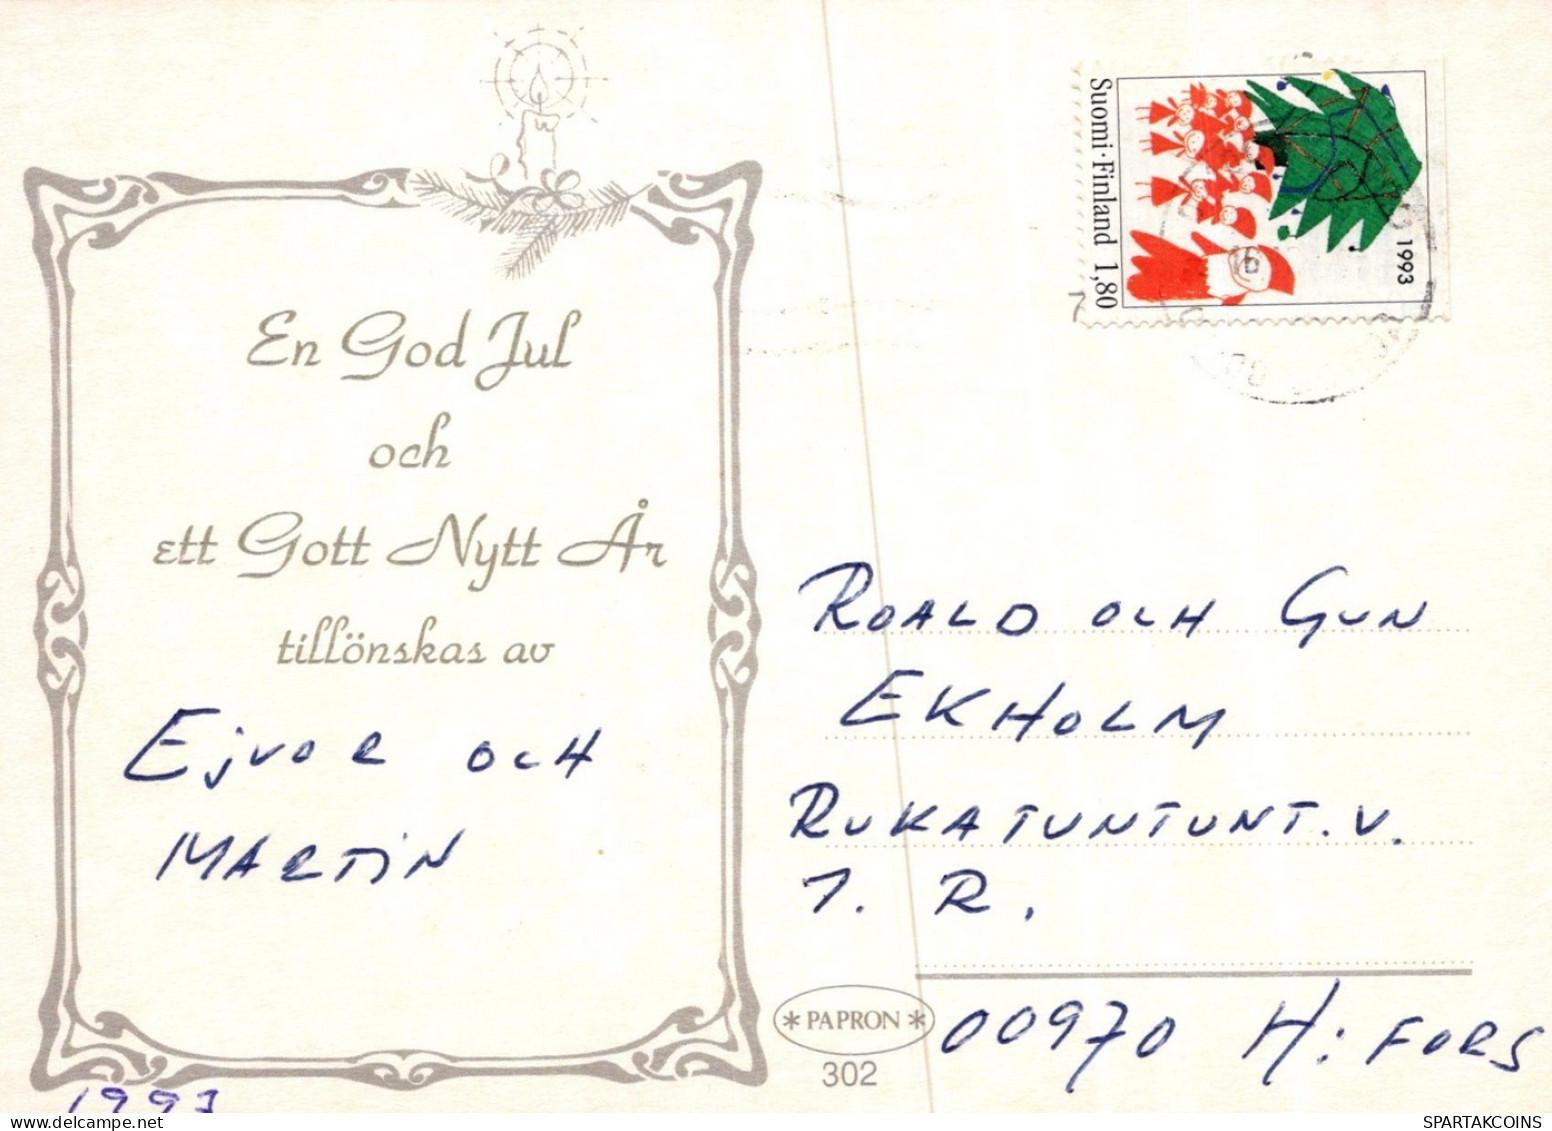 Suomi·Finland 1,80
1993
En God Jul
och
ett Gott Nytt År
tillönskas av
Ejvor och
Martin
Roald och Gun
Ekholm
Rukatuntunt.v.
1. R.
00970 H:fors
* PAPRON *
302
1993
SPARTAKCOINS